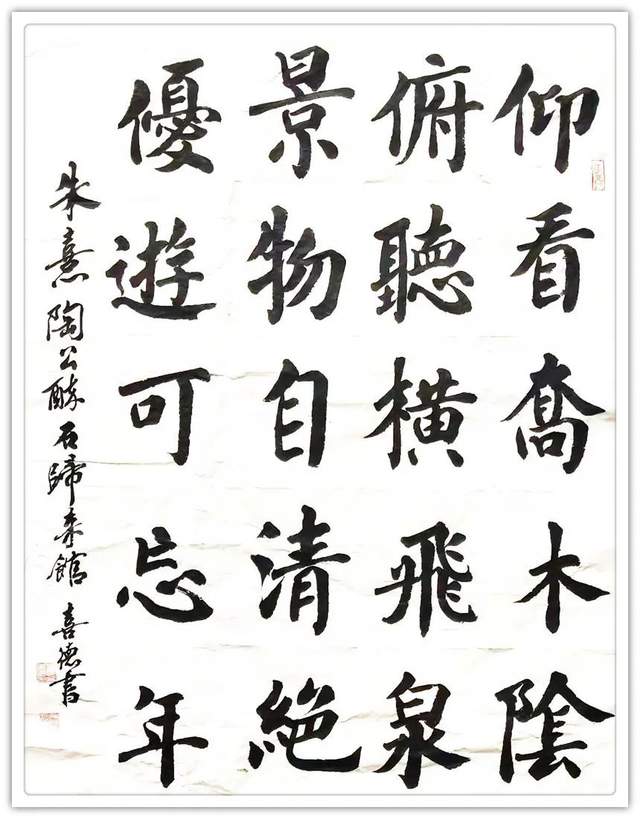 仰看喬木陰
俯聽橫飛泉
景物自清絶
優遊可忘年
朱熹陶公醉石歸来館 喜德書